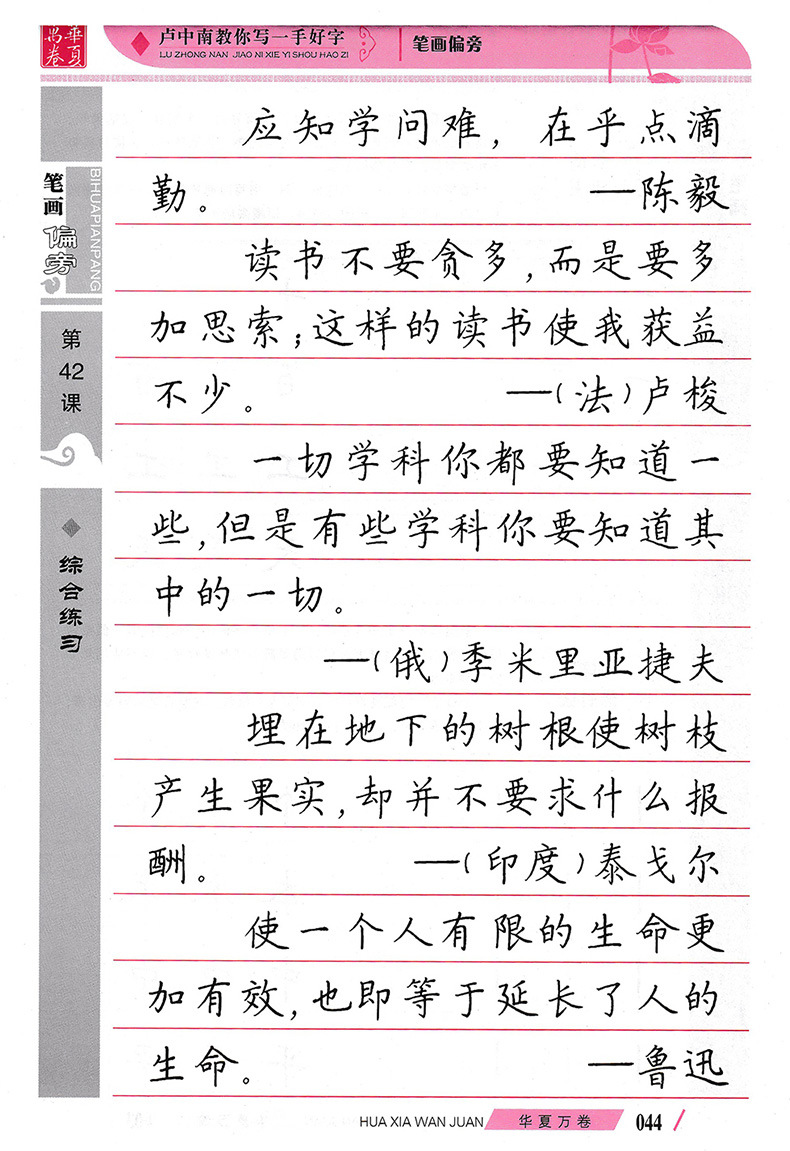 華夏萬卷
卢中南教你写一手好字
LU ZHONG NAN JIAO NI XIE YI SHOU HAO ZI
笔画偏旁
笔画偏旁
BIHUAPIANPANG
第42课
综合练习
应知学问难，在乎点滴
勤。 —陈毅
读书不要贪多，而是要多
加思索；这样的读书使我获益
不少。 —（法）卢梭
一切学科你都要知道一
些，但是有些学科你要知道其
中的一切。
—（俄）季米里亚捷夫
埋在地下的树根使树枝
产生果实，却并不要求什么报
酬。 —（印度）泰戈尔
使一个人有限的生命更
加有效，也即等于延长了人的
生命。 —鲁迅
HUA XIA WAN JUAN 华夏万卷 044